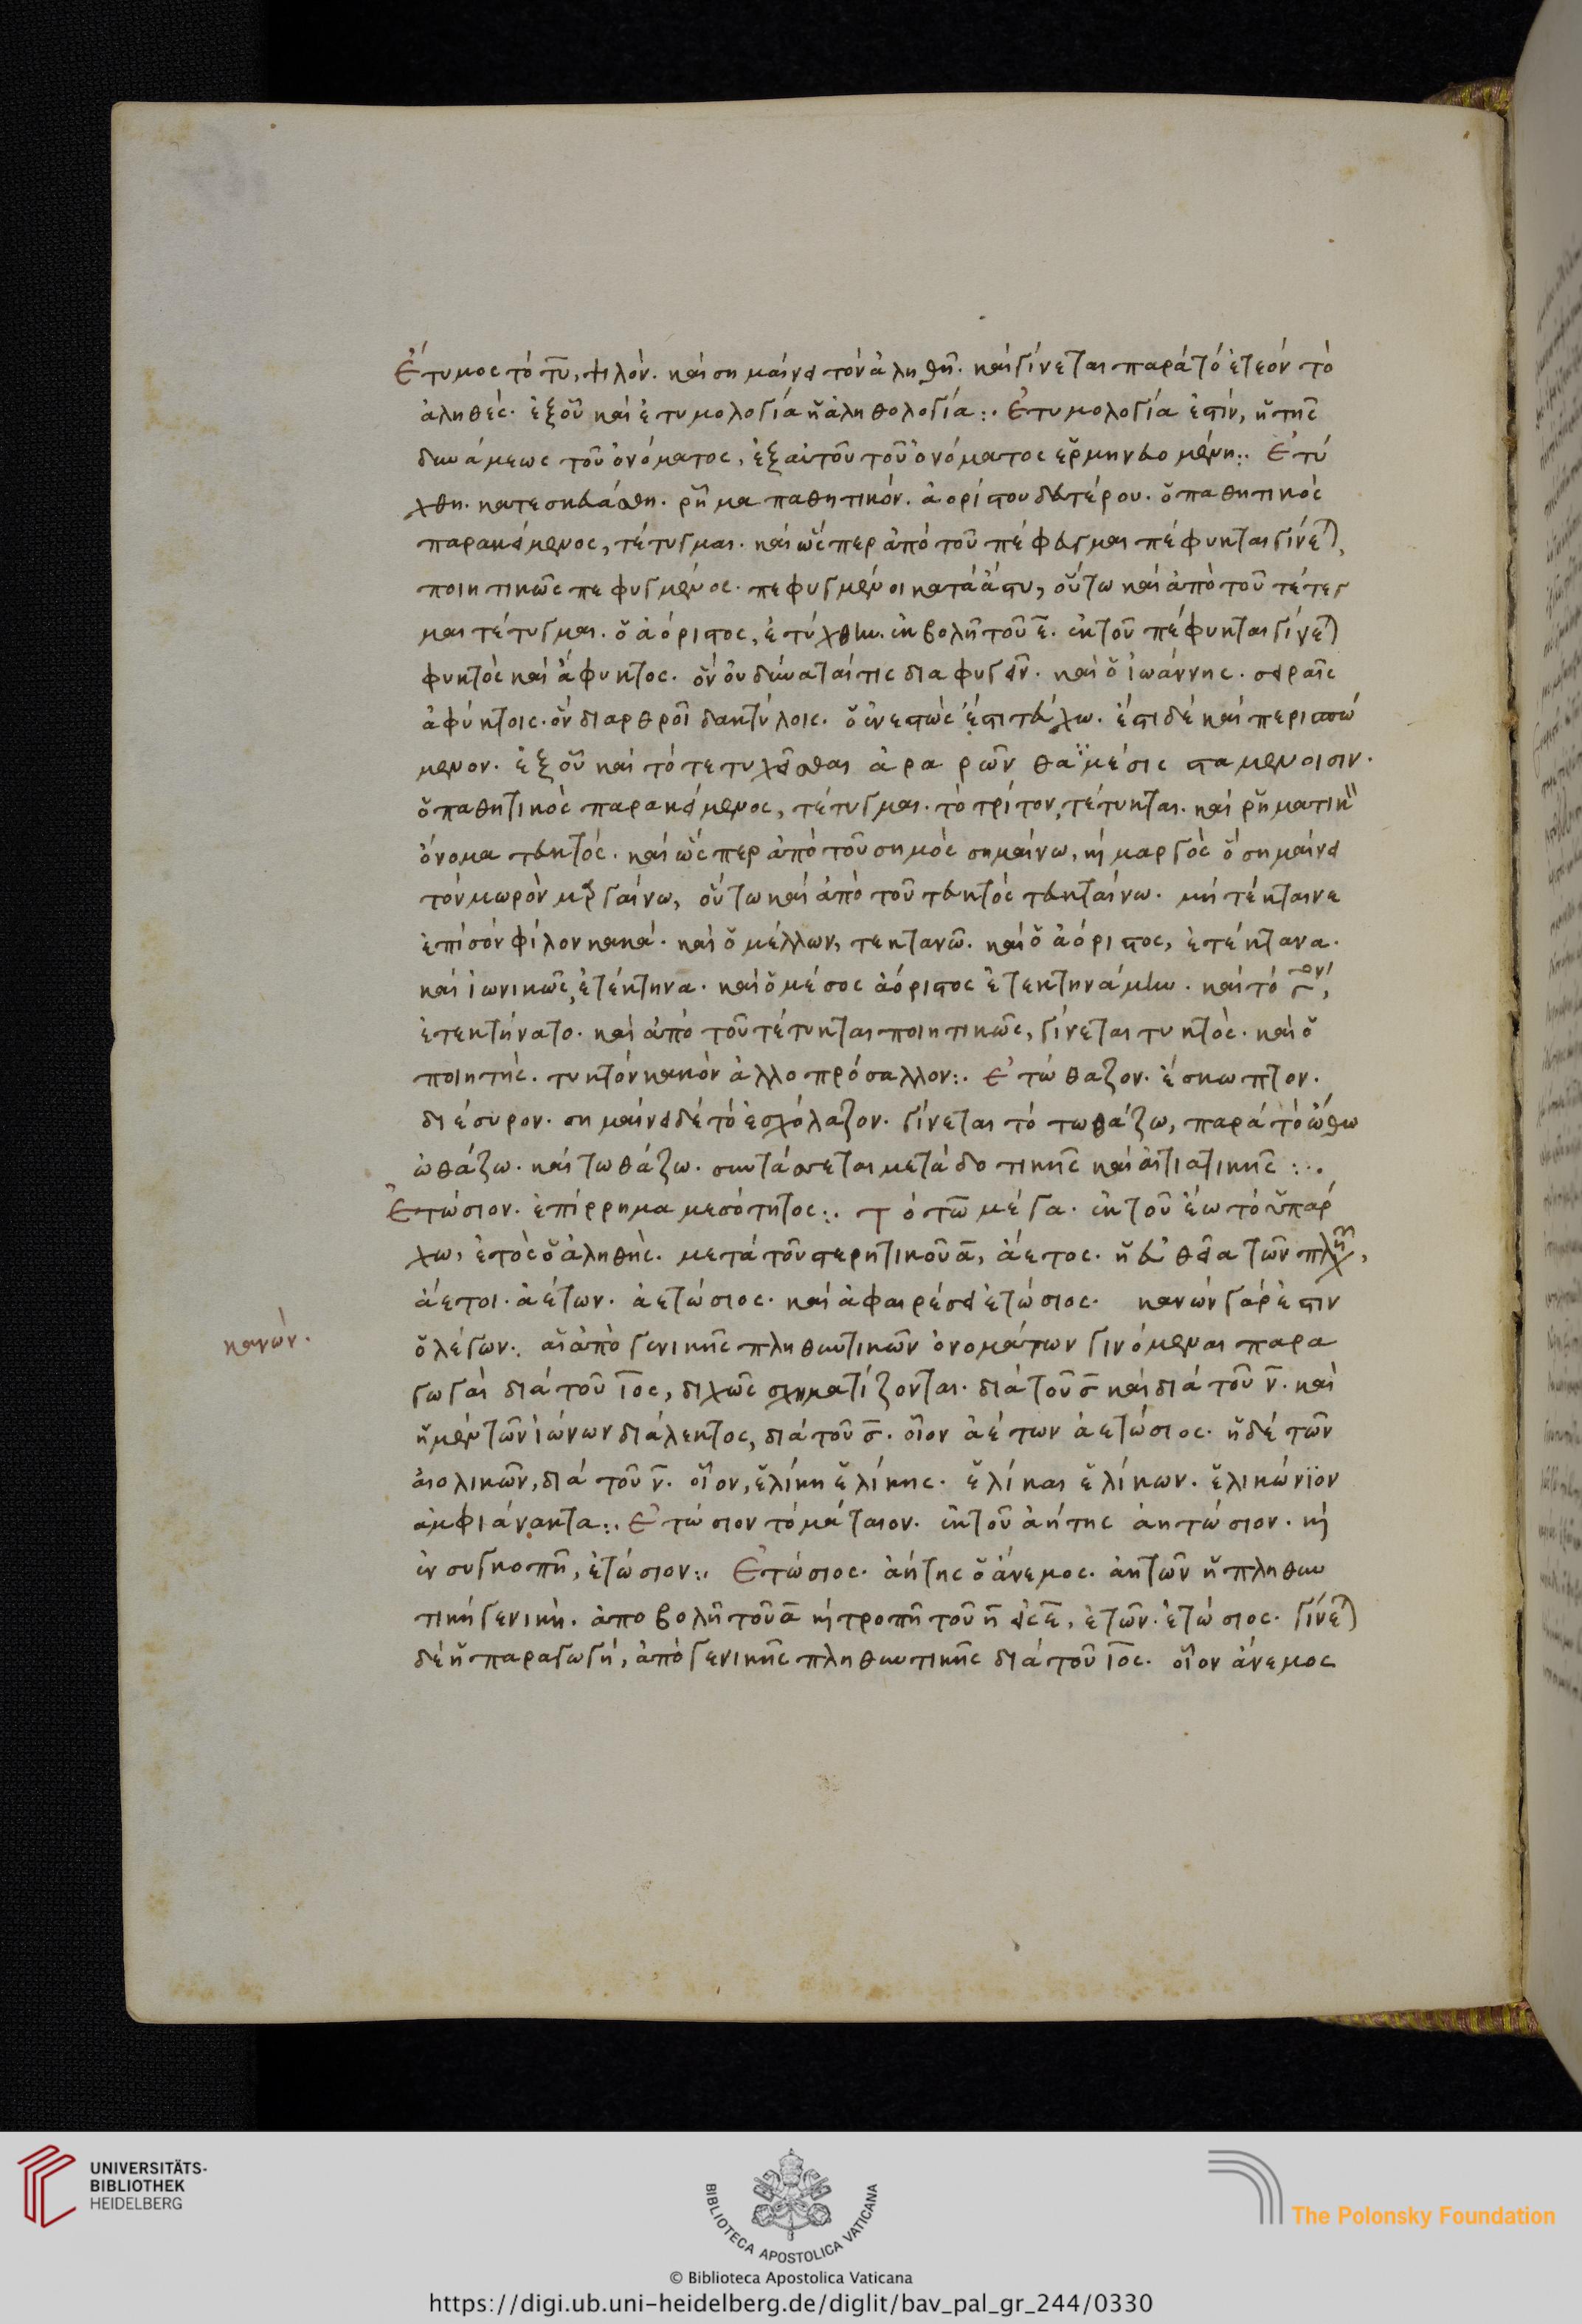 Ἔτυμος τὸ τῡ, ψιλόν. καὶ σημαίνει τὸν ἀληθῆ. καὶ γίνεται παρὰ τὸ ἐτεόν τὸ
ἀληθές. ἐξ οὗ καὶ ἐτυμολογία ἡ ἀληθολογία :. Ἐτυμολογία ἐστίν, ἡ τῆς
δυνάμεως τοῦ ὀνόματος, ἐξ αὐτοῦ τοῦ ὀνόματος ἑρμηνευομένη :. Ἐτύ
χθη. κατεσκευάσθη. ῥῆμα παθητικόν. ἀορίστου δευτέρου. ὁ παθητικὸς
παρακείμενος, τέτυγμαι. καὶ ὥσπερ ἀπὸ τοῦ πέφευγμαι πέφυκται γίνε),
ποιητικῶς πεφυγμένος. πεφυγμένοι κατὰ ἄστυ, οὕτω καὶ ἀπὸ τοῦ τέτευγ
μαι τέτυγμαι. ὁ ἀόριστος, ἐτύχθην. ἐκβολῇ τοῦ ε̄. ἐκ τοῦ πέφυκται γίνε)
φυκτὸς καὶ ἄφυκτος. ὃν οὐ δύναταί τις διαφυγεῖν. καὶ ὁ ἰωάννης. σειραῖς
ἀφύκτοις. ὃν διαρθροῖ δακτύλοις. ὁ ἐνεστὼς ἔστι τεύχω. ἔστι δὲ καὶ περισπώ
μενον. ἐξ οὗ καὶ τὸ τετυχεῖσθαι
ὁ παθητικὸς παρακείμενος, τέτυγμαι. τὸ τρίτον, τέτυκται. καὶ ῥηματικ
ὄνομα τευκτός. καὶ ὥσπερ ἀπὸ τοῦ σημὸς σημαίνω, κ μαργὸς ὁ σημαίνει
τὸν μωρὸν μαργαίνω, οὕτω καὶ ἀπὸ τοῦ τευκτὸς τευκταίνω. μὴ τέκταινε
ἐπὶ σὸν φίλον κακά. καὶ ὁ μέλλων, τεκτανῶ. καὶ ὁ ἀόριστος, ἐτέκτανα.
καὶ ἰωνικῶς, ἐτέκτηνα. καὶ ὁ μέσος ἀόριστος ἐτεκτηνάμην. καὶ τὸ γ̄ον,
ἐτεκτήνατο. καὶ ἀπὸ τοῦ τέτυκται ποιητικῶς, γίνεται τυκτὸς. καὶ ὁ
ποιητής. τυκτὸν κακὸν ἀλλοπρόσαλλον :. Ἐτώθαζον. ἔσκωπτον.
διέσυρον. σημαίνει δὲ τὸ ἐσχόλαζον. γίνεται τὸ τωθάζω, παρὰ τὸ ὤθω
ὠθάζω. καὶ τωθάζω. συντάσσεται μετὰ δοτικῆς καὶ αἰτιατικῆς :.
Ἐτώσιον. ἐπίρρημα μεσότητος :. Τὸ τω̄ μέγα. ἐκ τοῦ ἕω τὸ ὑπάρ
χω, ἐτὸς ὁ ἀληθὴς. μετὰ τοῦ στερητικοῦ ᾱ, ἄετος. ἡ εὐθεῖα τῶν πλη,
ἄετοι. ἀέτων. ἀετώσιος. καὶ ἀφαιρέσει ἐτώσιος. κανὼν γάρ ἐστιν
κανών.
ὁ λέγων :. αἱ ἀπὸ γενικῆς πληθυντικῶν ὀνομάτων γινόμεναι παρα
γωγαὶ διὰ τοῦ ῑος, διχῶς σχηματίζονται. διὰ τοῦ σ̄ καὶ διὰ τοῦ ν̄. καὶ
ἡ μὲν τῶν ἰώνων διάλεκτος, διὰ τοῦ σ̄. οἷον ἀέτων ἀετώσιος. ἡ δὲ τῶν
αἰολικῶν, διὰ τοῦ ν̄. οἷον, ἑλίκη ἑλίκης. ἑλίκαι ἑλίκων. ἑλικώνϊον
ἀμφιάνακτα :. Ἐτώσιον τὸ μάταιον. ἐκ τοῦ ἀήτης ἀητώσιον. κ
ἐν συγκοπῇ, ἐτώσιον :. Ἐτώσιος. ἀήτης ὁ ἄνεμος. ἀητῶν ἡ πληθυν
τικὴ γενικὴ. ἀποβολῇ τοῦ ᾱ κ τροπῇ τοῦ η̄ εἰς ε̄, ἐτῶν. ἐτώσιος. γίνε)
δὲ ἡ παραγωγή, ἀπὸ γενικῆς πληθυντικῆς διὰ τοῦ ῑος. οἷον ἄνεμος
UNIVERSITÄTS-
BIBLIOTHEK
HEIDELBERG
BIBLIOTECA APOSTOLICA VATICANA
The Polonsky Foundation
© Biblioteca Apostolica Vaticana
https://digi.ub.uni-heidelberg.de/diglit/bav_pal_gr_244/0330